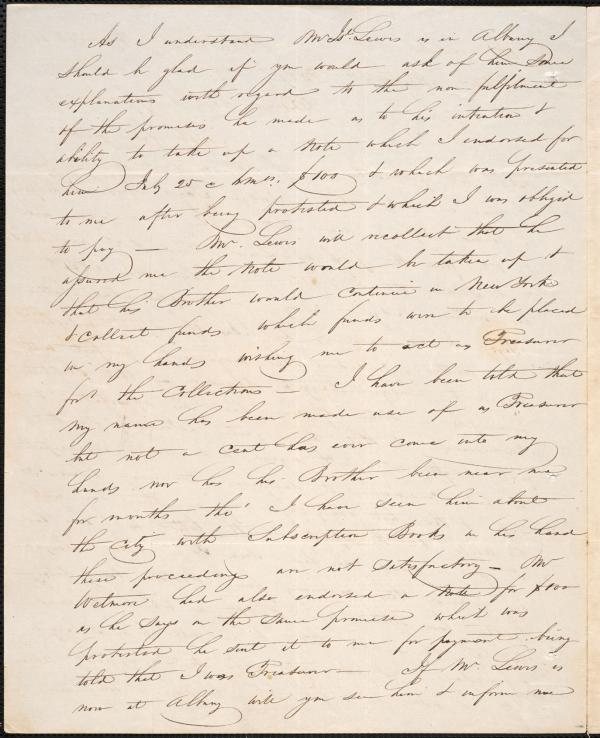 As I understand Mr Is. Lewis is in Albany I
should be glad if you would ask of him some
explanations with regard to the non fulfilment
of the promises he made as to his intention &
ability to take up a Note which I endorsed for
him July 25 6 hms. $100 & which was presented
to me after being protested & which I was obliged
to pay — Mr. Lewis will recollect that he
assured me the Note would be taken up &
that his Brother would continue in New York
& collect funds which funds were to be placed
in my hands wishing me to act as Treasurer
for the Collections — I have been told that
my name has been made use of as Treasurer
but not a cent has ever come into my
hands nor has his Brother been near me
for months tho' I have seen him about
the City with Subscription Books in his hand
these proceedings are not satisfactory — Mr
Wetmore had also endorsed a Note for $100
as he says on the same promise which was
protested he sent it to me for payment being
told that I was Treasurer — If Mr. Lewis is
now at Albany will you see him & inform me